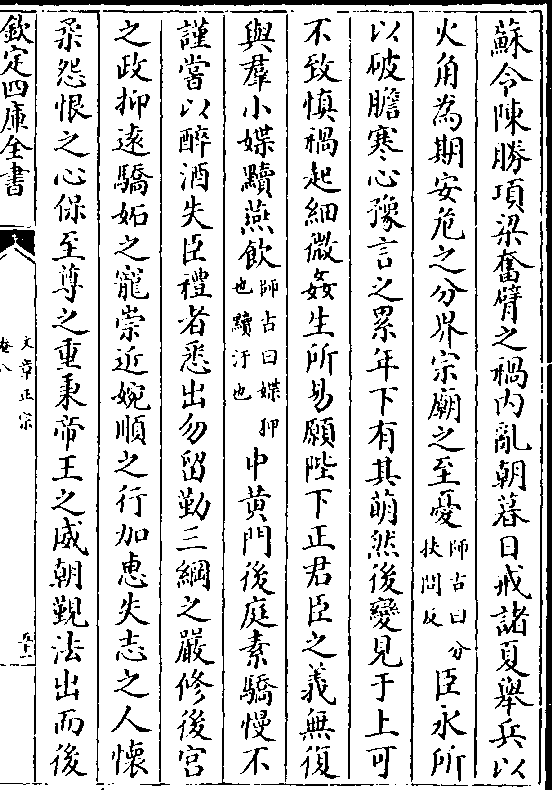 蘇令陳勝項梁奮臂之禍内亂朝暮日戒諸夏舉兵以
火角為期安危之分界宗廟之至憂師古曰分扶問反臣永所
以破膽寒心豫言之累年下有其萌然後變見于上可
不致慎禍起細微姦生所易願陛下正君臣之義無復
與羣小媟黷燕飲師古曰媟狎也黷汙也中黄門後庭素驕慢不
謹嘗以醉酒失臣禮者悉出勿留勤三綱之嚴修後宫
之政抑遠驕妬之寵崇近婉順之行加惠失志之人懷
柔怨恨之心保至尊之重秉帝王之威朝覲法出而後
欽定四庫全書
文章正宗
卷八